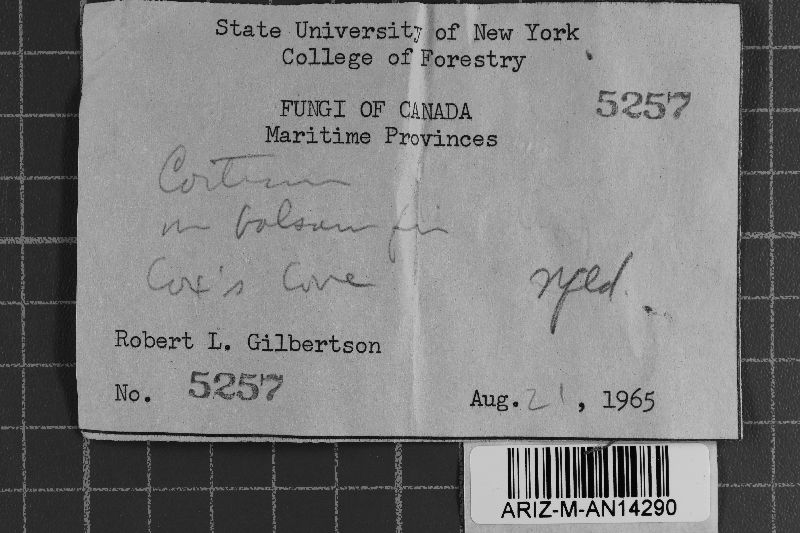 State University of New York
College of Forestry
FUNGI OF CANADA
5257
Maritime Provinces
on balsam fir
Cox's Cove
Nfld.
Robert L. Gilbertson
No. 5257
Aug. 21, 1965
ARIZ-M-AN14290